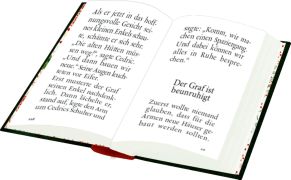 Als er jetzt in das hoff-
nungsvolle Gesicht sei-
nes kleinen Enkels schau-
te, schämte er sich sehr.
„Die alten Hütten müs-
sen weg“, sagte Cedric.
„Und dann bauen wir
neue.“ Seine Augen leuch-
teten vor Eifer.
Erst musterte der Graf
seinen Enkel nachdenk-
lich. Dann lächelte er,
stand auf, legte den Arm
um Cedrics Schulter und
sagte: „Komm, wir ma-
chen einen Spaziergang.
Und dabei können wir
alles in Ruhe bespre-
chen.“
Der Graf ist
beunruhigt
Zuerst wollte niemand
glauben, dass für die
Armen neue Häuser ge-
baut werden sollten.